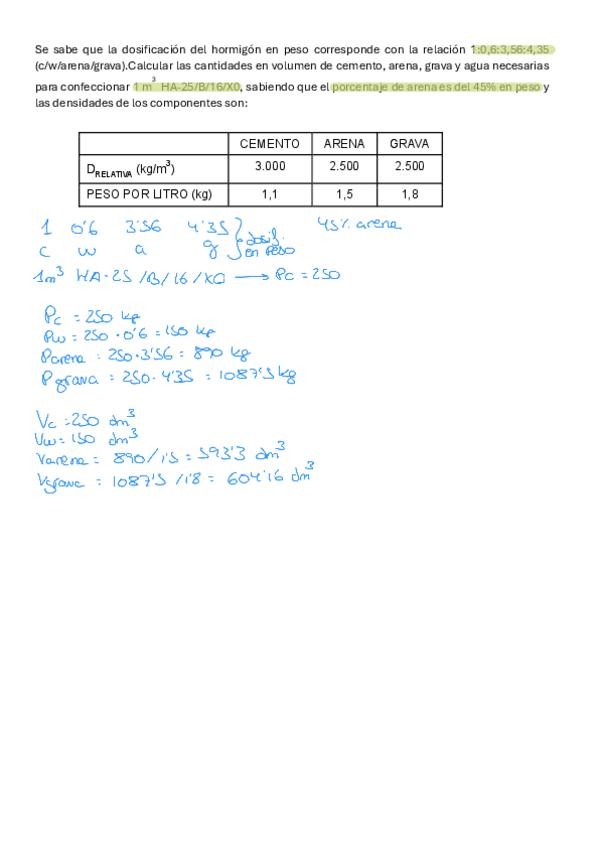 Se sabe que la dosificación del hormigón en peso corresponde con la relación 1:0,6:3,56:4,35
(c/w/arena/grava).Calcular las cantidades en volumen de cemento, arena, grava y agua necesarias
para confeccionar 1 m³ HA-25/B/16/X0, sabiendo que el porcentaje de arena es del 45% en peso y
las densidades de los componentes son:
CEMENTO ARENA GRAVA
D RELATIVA (kg/m³) 3.000 2.500 2.500
PESO POR LITRO (kg) 1,1 1,5 1,8
1 0'6 3'56 4'35 } dosif. 45% arena
c w a g } en peso
1m³ HA-25/B/16/X0 → Pc = 250
Pc = 250 kg
Pw = 250 · 0'6 = 150 kg
Parena = 250 · 3'56 = 890 kg
Pgrava = 250 · 4'35 = 1087'5 kg
Vc = 250 dm³
Vw = 150 dm³
Varena = 890/1'5 = 593'3 dm³
Vgrava = 1087'5 /1'8 = 604'16 dm³